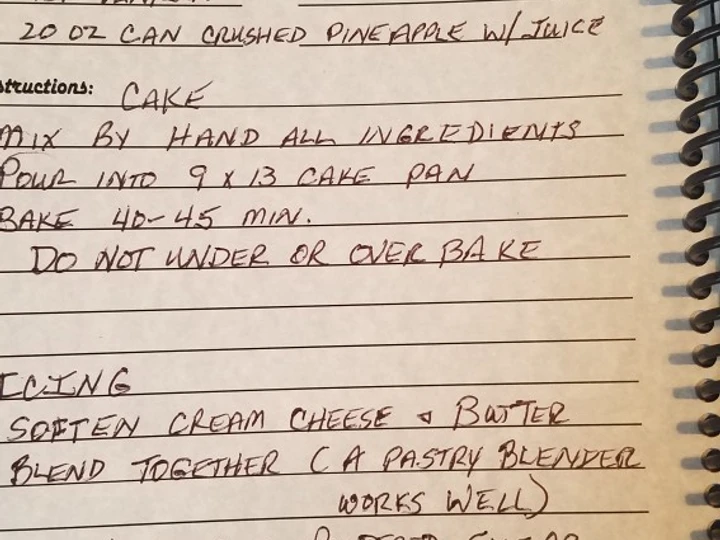 20 OZ CAN CRUSHED PINEAPPLE W/ JUICE
structions: CAKE
MIX BY HAND ALL INGREDIENTS
POUR INTO 9 X 13 CAKE PAN
BAKE 40-45 MIN.
DO NOT UNDER OR OVER BAKE
ICING
SOFTEN CREAM CHEESE & BUTTER
BLEND TOGETHER ( A PASTRY BLENDER
WORKS WELL)